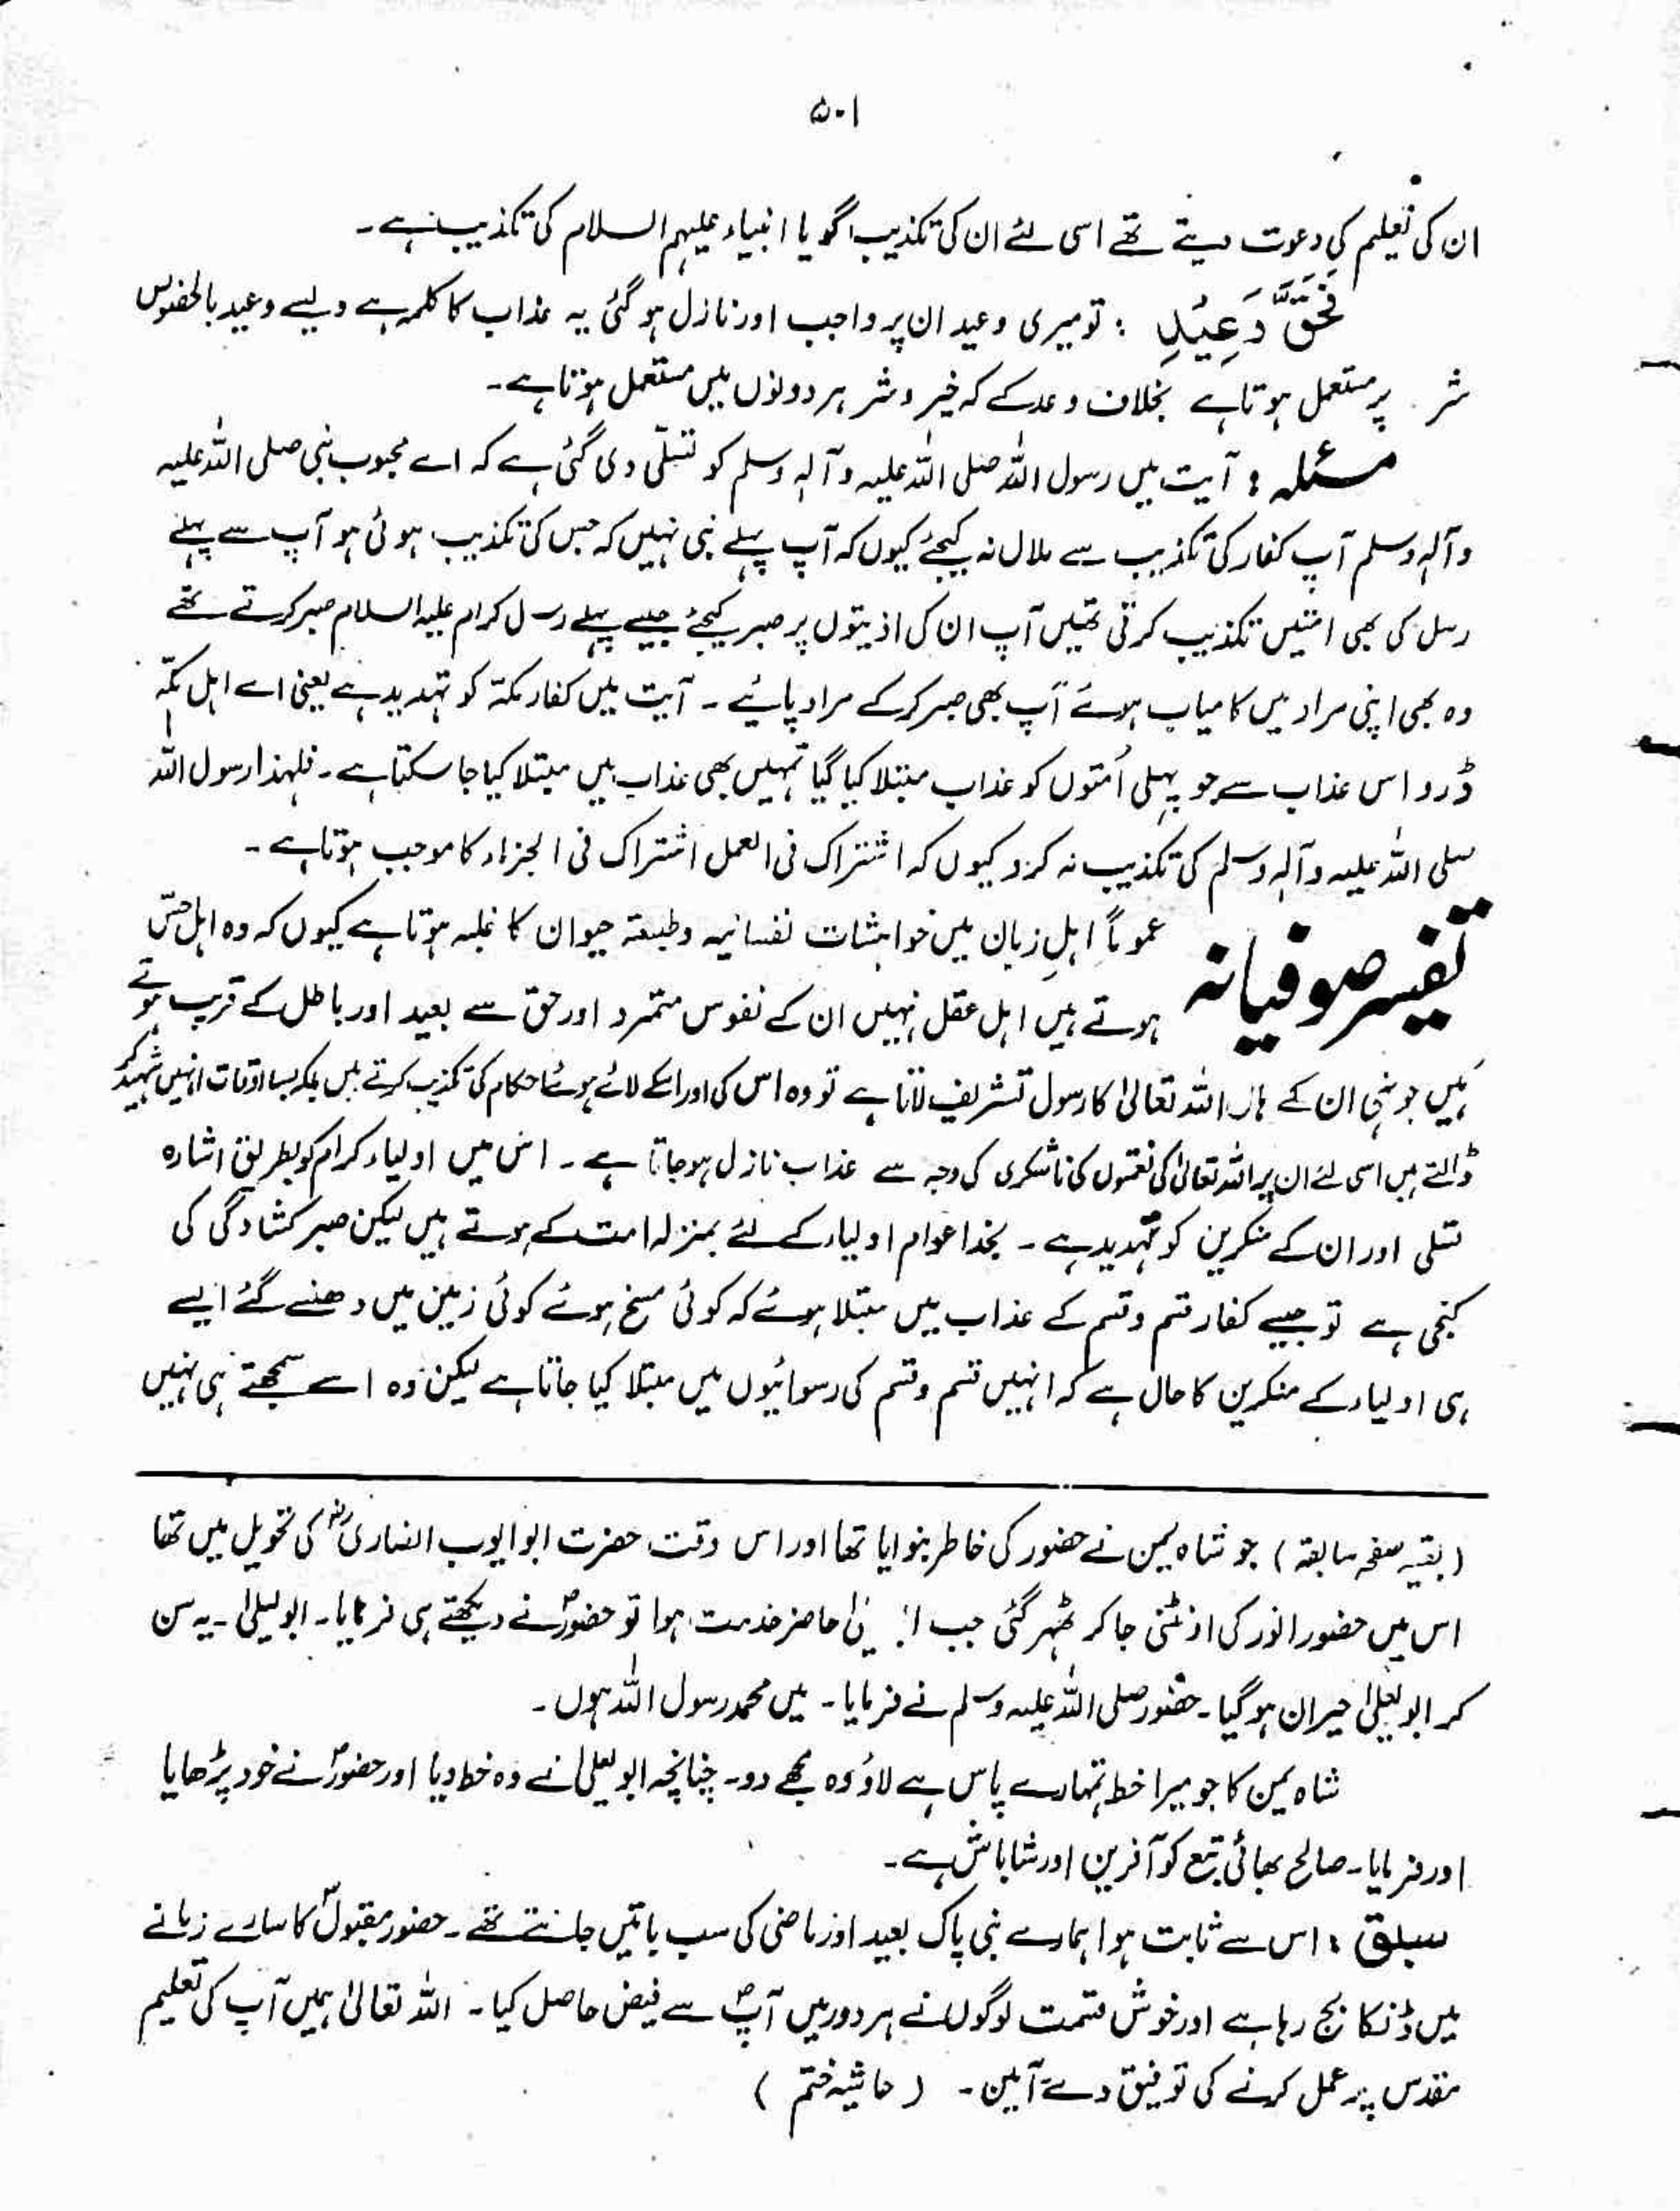 ۵۰۱
ان کی تعلیم کی دعوت دیتے تھے اسی لئے ان کی تکذیب گویا انبیاء علیہم السلام کی تکذیب ہے۔
فَحَقَّ وَعِیْدِ : تو میری وعید ان پر واجب اور نازل ہو گئی یہ عذاب کا کلمہ ہے ویسے وعید بالخصوص
شر پر مستعمل ہوتا ہے بخلاف وعد کے کہ خیر و شر ہر دونوں میں مستعمل ہوتا ہے۔
مسئلہ : آیت میں رسول اللہ صلی اللہ علیہ وآلہٖ وسلم کو تسلّی دی گئی ہے کہ اے محبوب نبی صلی اللہ علیہ
وآلہٖ وسلم آپ کفار کی تکذیب سے ملال نہ کیجئے کیوں کہ آپ پہلے نبی نہیں کہ جس کی تکذیب ہوئی ہو آپ سے پہلے
رسل کی بھی امتیں تکذیب کرتی تھیں آپ ان کی اذیتوں پر صبر کیجئے جیسے پہلے رسل کرام علیہ السلام صبر کرتے تھے
وہ بھی اپنی مراد میں کامیاب ہوئے آپ بھی صبر کرکے مراد پائیے ۔ آیت میں کفار مکّہ کو تہدید ہے یعنی اے اہل مکّہ
ڈرو اس عذاب سے جو پہلی اُمتوں کو عذاب مبتلا کیا گیا تمہیں بھی عذاب میں مبتلا کیا جا سکتا ہے۔ فلہٰذا رسول اللہ
صلی اللہ علیہ وآلہٖ وسلم کی تکذیب نہ کرو کیوں کہ اشتراک فی العمل اشتراک فی الجزاء کا موجب ہوتا ہے ۔
تفسیر صوفیانہ عموماً اہلِ زمان میں خواہشات نفسانیہ و طبیعۃ حیوان کا غلبہ ہوتا ہے کیوں کہ وہ اہل حسّ
ہوتے ہیں اہل عقل نہیں ان کے نفوس متمرد اور حق سے بعید اور باطل کے قریب ہوتے
ہیں جونہی ان کے ہاں اللہ تعالیٰ کا رسول تشریف لاتا ہے تو وہ اس کی اور اسکے لائے ہوئے احکام کی تکذیب کرتے ہیں بلکہ بسا اوقات انہیں شہید کر
ڈالتے ہیں اسی لئے ان پر اللہ تعالیٰ کی نعمتوں کی ناشکری کی وجہ سے عذاب نازل ہو جاتا ہے ۔ اس میں اولیاء کرام کو بطریق اشارہ
تسلی اور ان کے منکرین کو تہدید ہے ۔ بخدا عوام اولیاء کے لئے بمنزلہ امت کے ہوتے ہیں لیکن صبر کشادگی کی
کنجی ہے تو جیسے کفار قسم وقسم کے عذاب میں مبتلا ہوئے کہ کوئی مسخ ہوئے کوئی زمین میں دھنسے گئے ایسے
ہی اولیاء کے منکرین کا حال ہے کہ انہیں قسم وقسم کی رسوائیوں میں مبتلا کیا جاتا ہے لیکن وہ اسے سمجھتے ہی نہیں
(بقیہ صفحہ سابقہ) جو شاہ یمن نے حضور کی خاطر بنوایا تھا اور اس وقت حضرت ابو ایوب انصاریؓ کی تحویل میں تھا
اس میں حضور انور کی اونٹنی جا کر ٹھہر گئی جب حاضر خدمت ہوا تو حضورؐ نے دیکھتے ہی فرمایا۔ ابو لیلیٰ ۔ یہ سن
کر ابو لیلیٰ حیران ہو گیا ۔ حضور صلی اللہ علیہ وسلم نے فرمایا ۔ میں محمد رسول اللہ ہوں ۔
شاہ یمن کا جو میرا خط تمہارے پاس ہے لاؤ وہ مجھے دو۔ چنانچہ ابو لیلیٰ نے وہ خط دیا اور حضورؐ نے خود پڑھایا
اور فرمایا۔ صالح بھائی تبع کو آفرین اور شاباش ہے۔
سبق : اس سے ثابت ہوا ہمارے نبی پاک بعید اور ماضی کی سب باتیں جانتے تھے ۔ حضور مقبولؐ کا سارے زمانے
میں ڈنکا بج رہا ہے اور خوش قسمت لوگوں نے ہر دور میں آپؐ سے فیض حاصل کیا ۔ اللہ تعالیٰ ہمیں آپ کی تعلیم
مقدس پر عمل کرنے کی توفیق دے آمین ۔ (حاشیہ ختم)